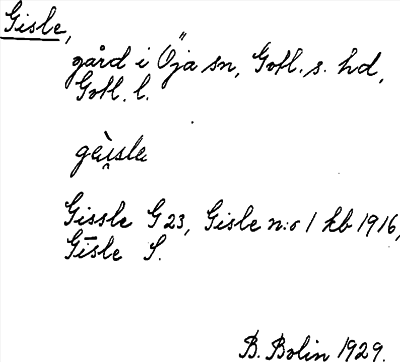 Gisle,
gård i Öja sn, Gotl. s. hd,
Gotl. l.
gèi̯sle
Gissle G 23, Gisle n:o 1 kb 1916,
Gīsle S.
B. Bolin 1929.